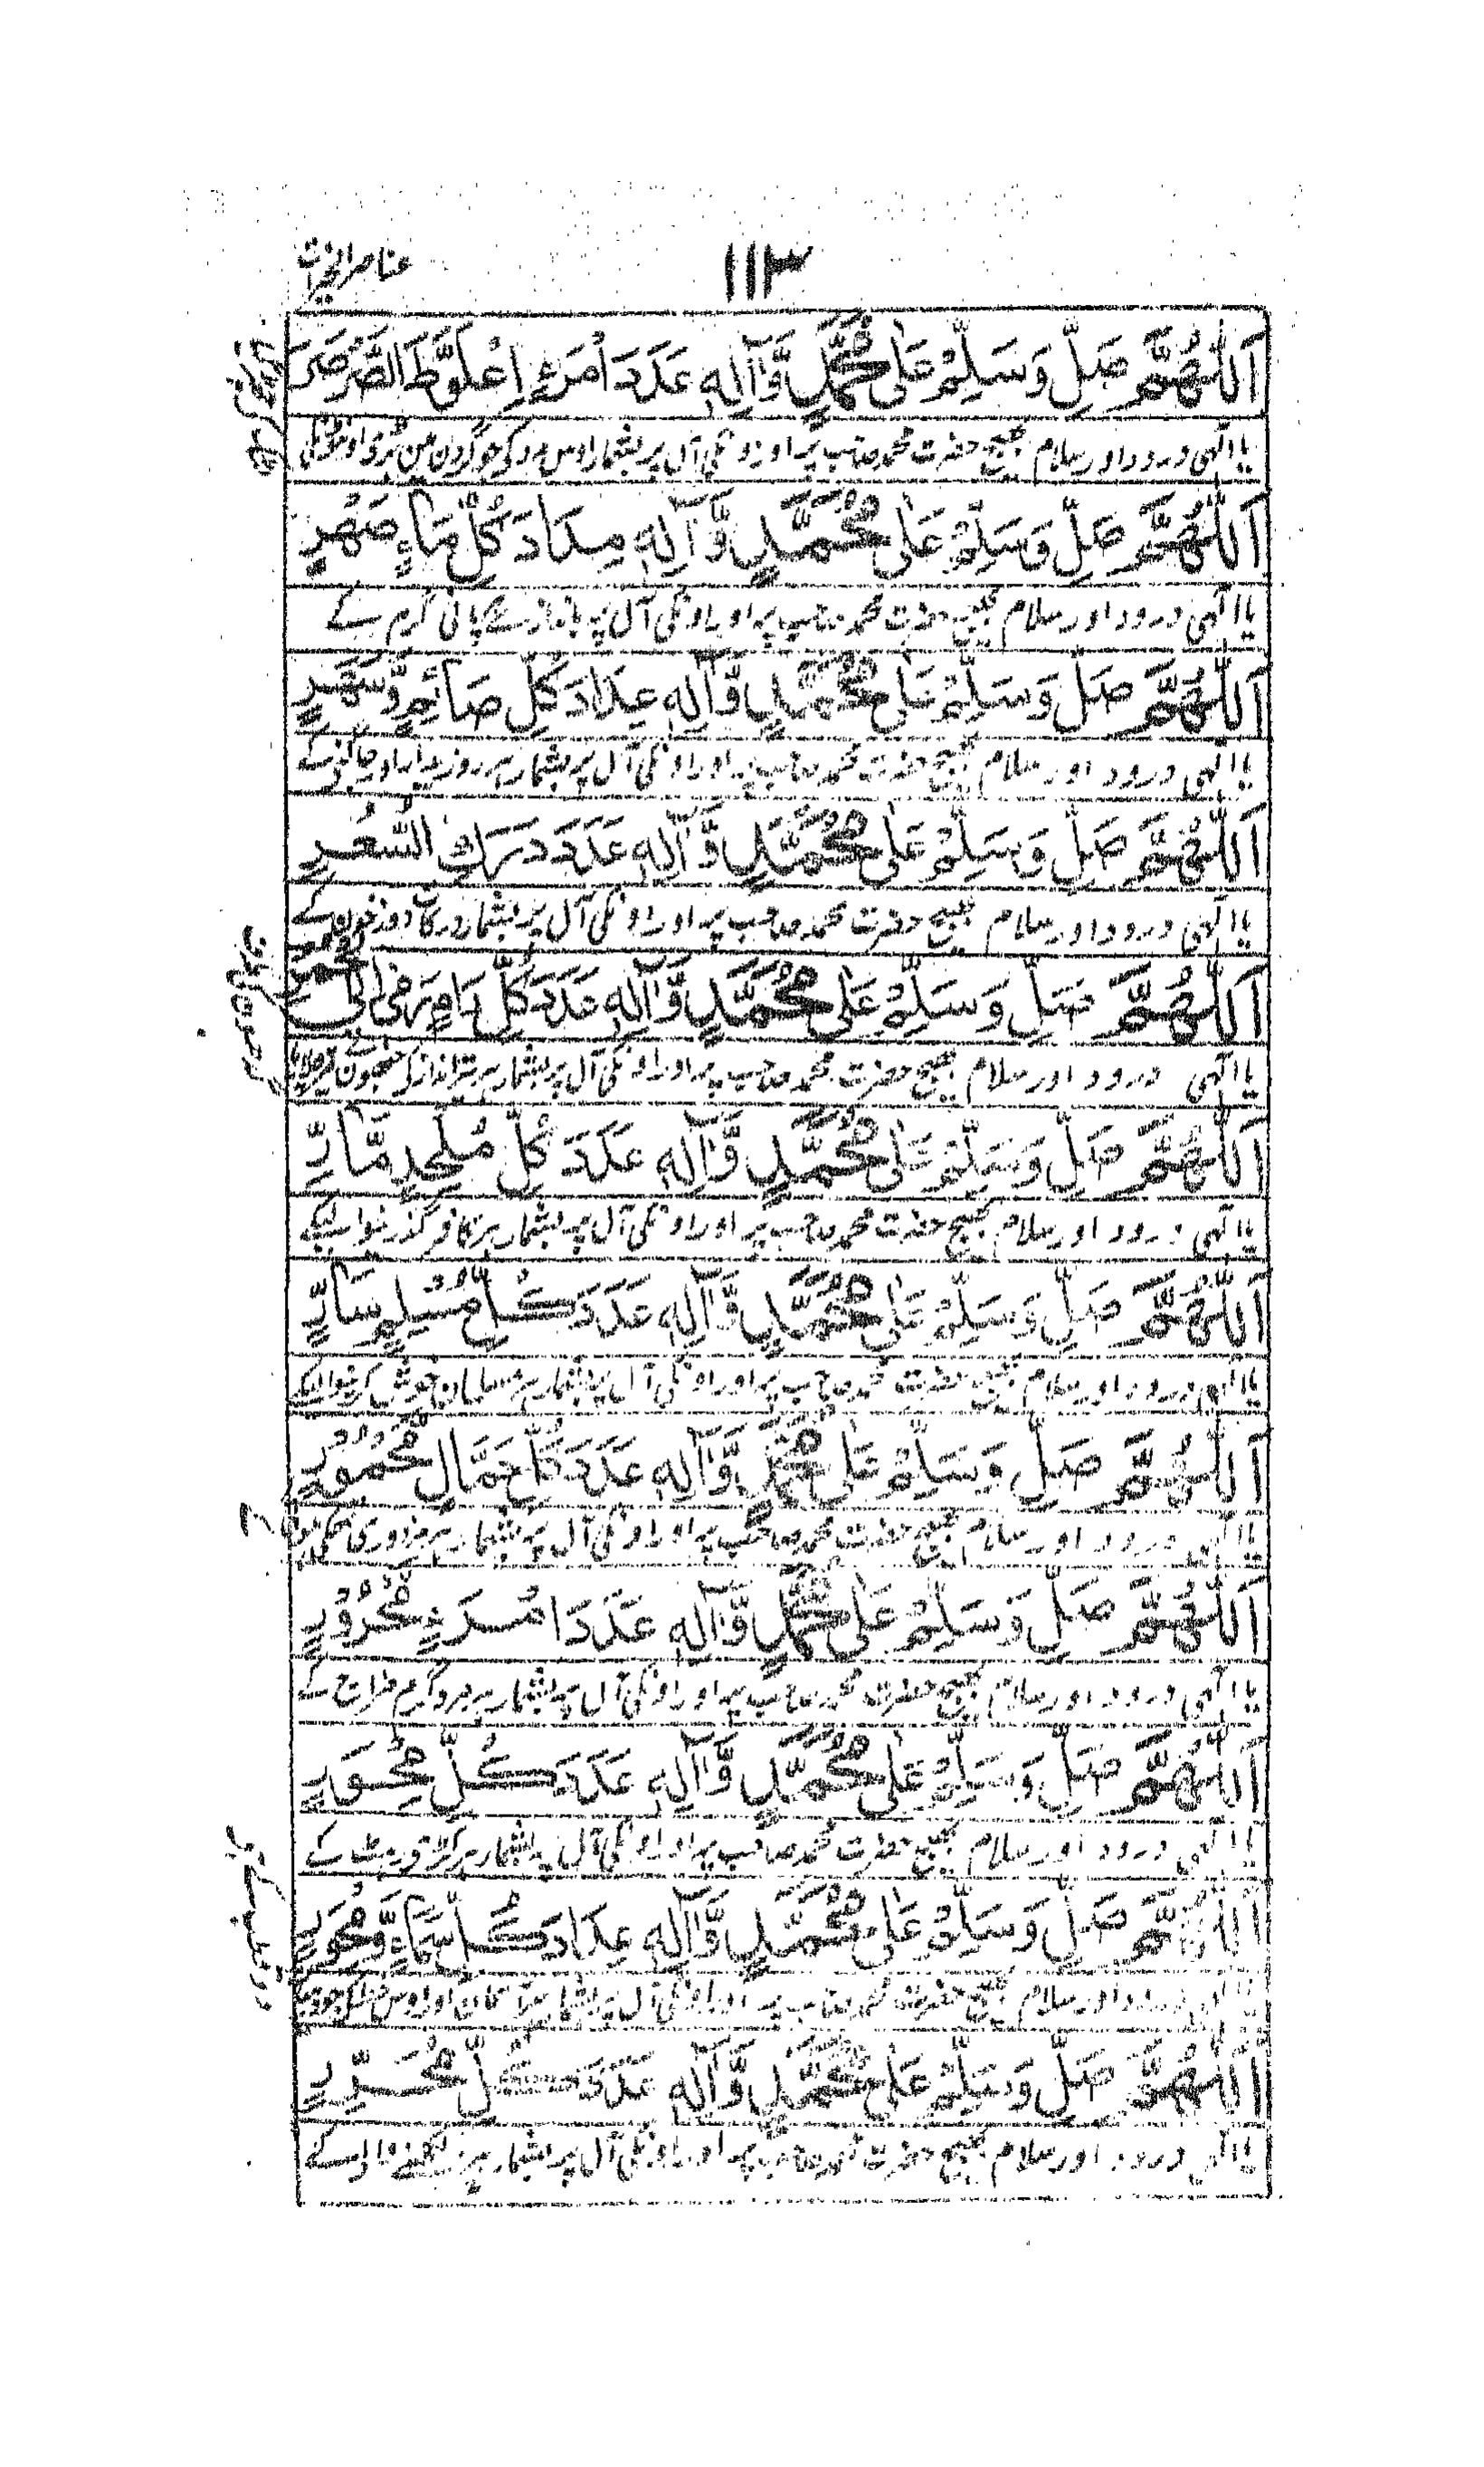 ١١٣
عناصر الخیرات
اَللّٰهُمَّ صَلِّ وَسَلِّمْ عَلٰی مُحَمَّدٍ وَّاٰلِهٖ عَدَدَ امْرَءٍ اِعْلَوَّطَ الصَّرْصَرَ
یا الٰہی درود اور سلام بھیج حضرت محمد صاحب پر اور اونکی آل پر بشمار اوس مرد کی جو گردن مین
اَللّٰهُمَّ صَلِّ وَسَلِّمْ عَلٰی مُحَمَّدٍ وَّاٰلِهٖ مِدَادَ كُلِّ مَاءٍ صَهْرٍ
یا الٰہی درود اور سلام بھیج حضرت محمد صاحب پر اور اونکی آل پر باندازے پانی گرم کے
اَللّٰهُمَّ صَلِّ وَسَلِّمْ عَلٰی مُحَمَّدٍ وَّاٰلِهٖ عِدَادَ كُلِّ صَائِمٍ وَّسَهَرٍ
یا الٰہی درود اور سلام بھیج حضرت محمد صاحب پر اور اونکی آل پر بشمار ہر روزہ دار اور جاگنے کے
اَللّٰهُمَّ صَلِّ وَسَلِّمْ عَلٰی مُحَمَّدٍ وَّاٰلِهٖ عَدَدَ دَرَكِ السُّعُرِ
یا الٰہی درود اور سلام بھیج حضرت محمد صاحب پر اور اونکی آل پر بشمار درکات دوزخون کے
اَللّٰهُمَّ صَلِّ وَسَلِّمْ عَلٰی مُحَمَّدٍ وَّاٰلِهٖ عَدَدَ كُلِّ رَامٍ رَمٰی اِلَی
یا الٰہی درود اور سلام بھیج حضرت محمد صاحب پر اور اونکی آل پر بشمار ہر تیر انداز کی
اَللّٰهُمَّ صَلِّ وَسَلِّمْ عَلٰی مُحَمَّدٍ وَّاٰلِهٖ عَدَدَ كُلِّ مُلْحِدٍ مَّارٍّ
یا الٰہی درود اور سلام بھیج حضرت محمد صاحب پر اور اونکی آل پر بشمار ہر کافر گذرنیوالیکے
اَللّٰهُمَّ صَلِّ وَسَلِّمْ عَلٰی مُحَمَّدٍ وَّاٰلِهٖ عَدَدَ كُلِّ مُسْلِمٍ سَارٍّ
یا الٰہی درود اور سلام بھیج حضرت محمد صاحب پر اور اونکی آل پر بشمار ہر مسلمان خوش کرنیوالیکے
اَللّٰهُمَّ صَلِّ وَسَلِّمْ عَلٰی مُحَمَّدٍ وَّاٰلِهٖ عَدَدَ كُلِّ حَمَّالٍ
یا الٰہی درود اور سلام بھیج حضرت محمد صاحب پر اور اونکی آل پر بشمار ہر مزدوری
اَللّٰهُمَّ صَلِّ وَسَلِّمْ عَلٰی مُحَمَّدٍ وَّاٰلِهٖ عَدَدَ امْرَءٍ مَّحْرُوْرٍ
یا الٰہی درود اور سلام بھیج حضرت محمد صاحب پر اور اونکی آل پر بشمار ہر مرد گرم مزاج کے
اَللّٰهُمَّ صَلِّ وَسَلِّمْ عَلٰی مُحَمَّدٍ وَّاٰلِهٖ عَدَدَ كُلِّ مِحْوَرٍ
یا الٰہی درود اور سلام بھیج حضرت محمد صاحب پر اور اونکی آل پر بشمار ہر
اَللّٰهُمَّ صَلِّ وَسَلِّمْ عَلٰی مُحَمَّدٍ وَّاٰلِهٖ عِدَادَ كُلِّ سَمَاءٍ وَّمِحْوَرٍ
یا الٰہی درود اور سلام بھیج حضرت محمد صاحب پر اور اونکی آل پر بشمار ہر آسمان اور اوس
اَللّٰهُمَّ صَلِّ وَسَلِّمْ عَلٰی مُحَمَّدٍ وَّاٰلِهٖ عَدَدَ كُلِّ مُحَرِّرٍ
یا الٰہی درود اور سلام بھیج حضرت محمد صاحب پر اور اونکی آل پر بشمار ہر لکھنے والے کے